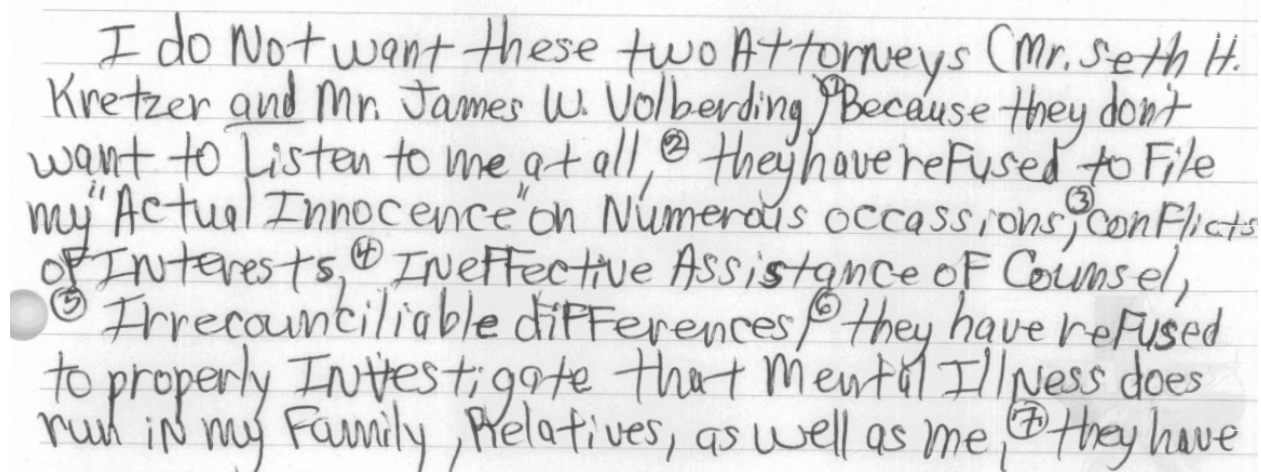 I do Not want these two Attorneys (Mr. Seth H.
Kretzer and Mr. James W. Volberding) ① Because they don't
want to Listen to me at all, ② they have refused to File
my "Actual Innocence" on Numerous occassions, ③ conflicts
of Interests, ④ Ineffective Assistance of Counsel,
⑤ Irrecounciliable differences, ⑥ they have refused
to properly Investigate that Mental Illness does
run in my Family, Relatives, as well as me, ⑦ they have